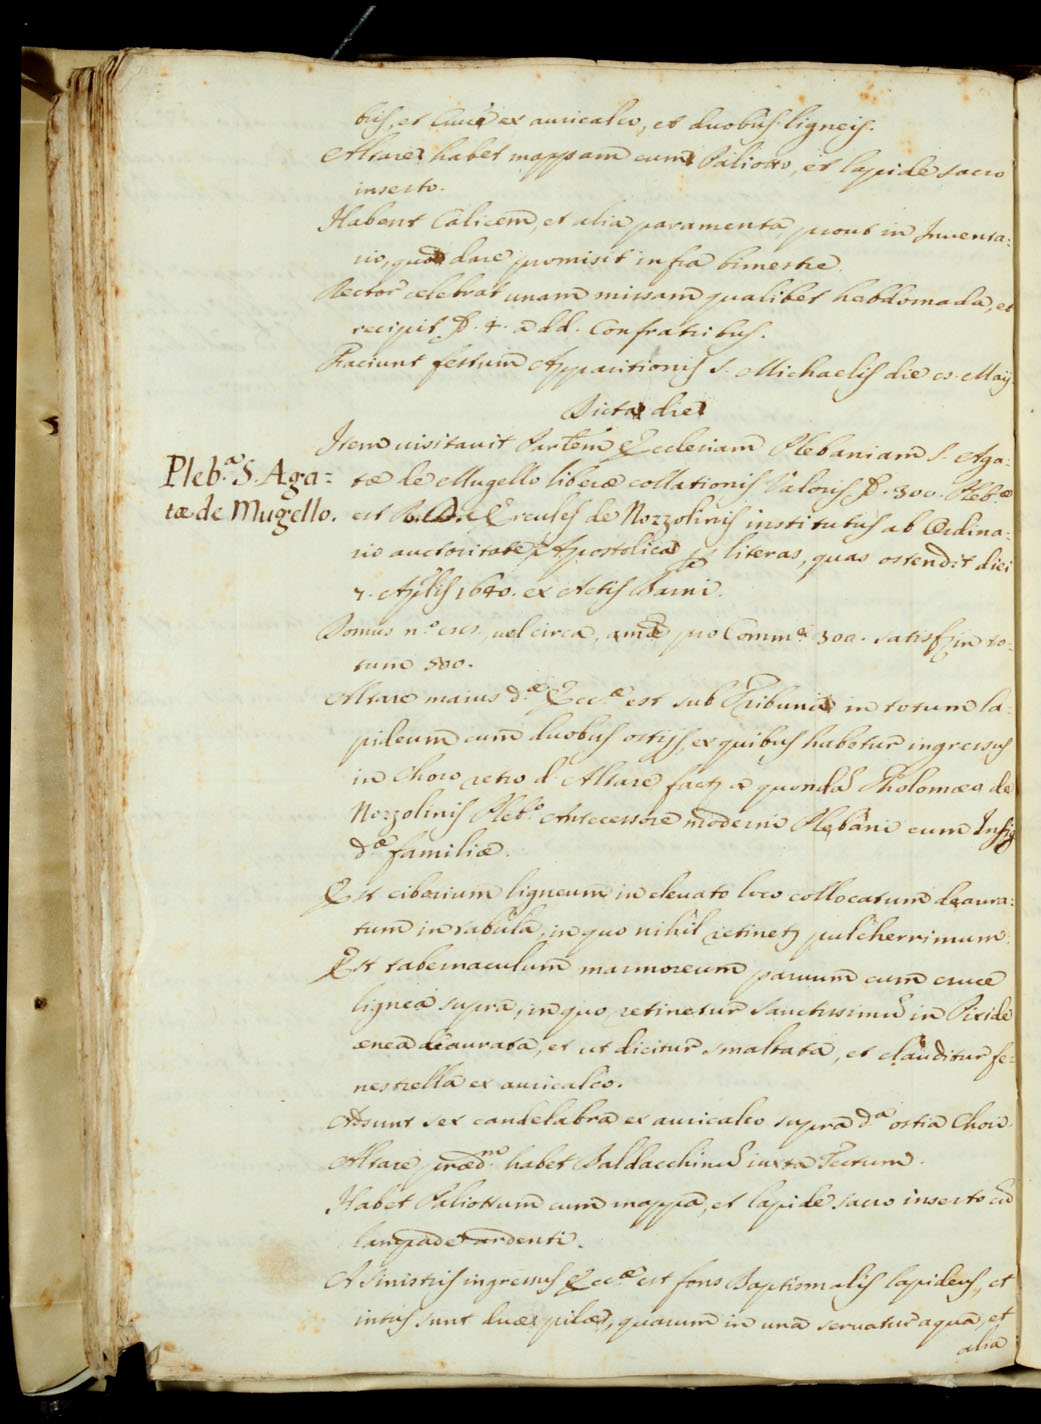 bus, et Cruce ex auricalco, et duobus ligneis.
Altare habet mappam cum Paliotto, et lapide sacro
inserto.
Habent Calicem, et alia paramenta prout in Inventa:
rio, quod dare promisit infra bimestre.
Rector celebrat unam missam qualibet hebdomada, et
recipit 4. a dd. Confratribus.
Faciunt festum Apparitionis S. Michaelis die Maij
Dicta die
Item visitavit Ecclesiam Plebaniam S. Aga:
Pleb.ª S. Aga=
tæ de Mugello.
tæ de Mugello liberæ collationis Valoris 300. Pleb.
est Ercules de Nozzolinis institutus ab Ordina:
rio auctoritate Apostolica literas, quas ostendit diei
7. Aplis 1640. ex Actis
Domus n.º vel circa, pro Comm.e 300. satisf in to:
tum 500.
Altare maius d.æ Ecc.æ est sub Tribuna in totum la:
pideum cum duobus ostijs, ex quibus habetur ingressus
in Choro retro d. Altare fact a quondã Tholomæo de
Nozzolinis Pleb.º Antecessore moderni Plebani cum Insig
d.æ familiæ.
Est ciborium ligneum in elevato loco collocatum deaura:
tum in tabula, in quo nihil retinet pulcherrimum.
Est tabernaculum marmoreum parvum cum cruce
lignea supra, in quo retinetur Sanctissimũ in Pixide
ænea deaurata, et ut dicitur smaltata, et clauditur fe:
nestrella ex auricalco.
Adsunt sex candelabra ex auricalco supra d.ª ostia Chori.
Altare præd.m habet Baldacchinũ iuxta Tectum.
Habet Paliottum cum mappa, et lapide sacro inserto cũ
lampade ardenti.
A Sinistris ingressus Ecc.æ est fons Baptismalis lapideus, et
intus sunt duæ pilæ, quarum in una servatur aqua, et
alia